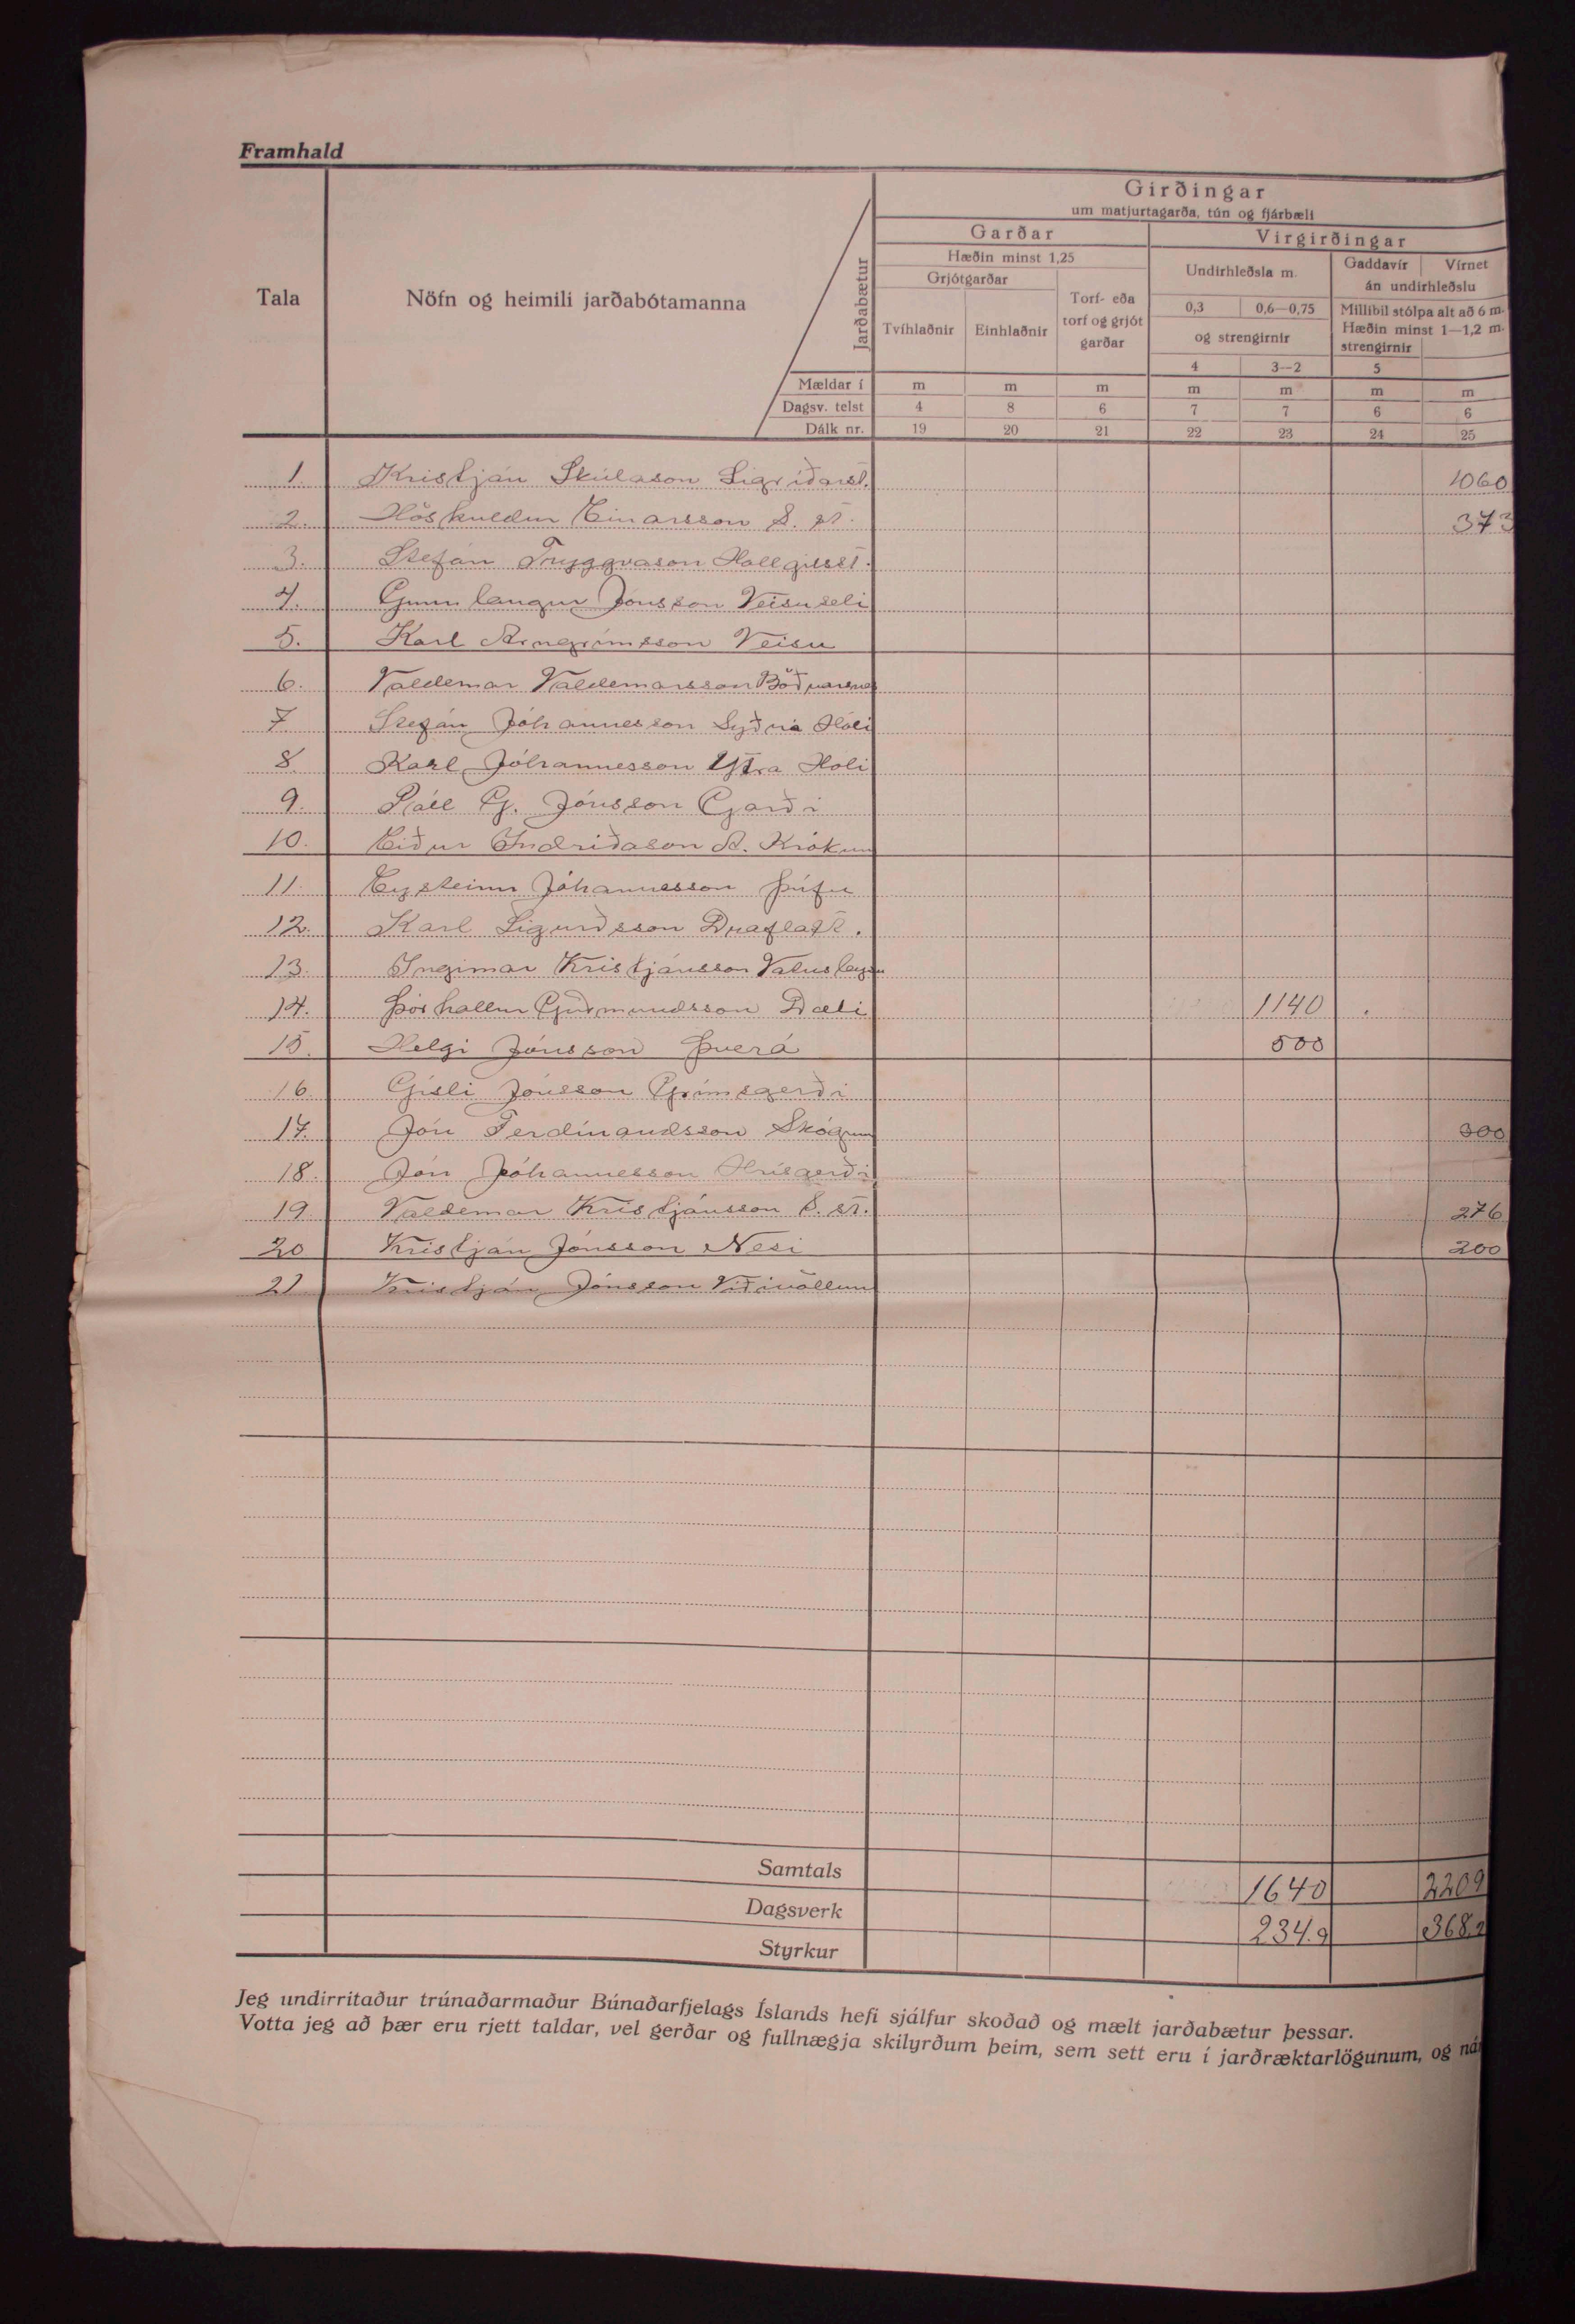 Framhald
Girðingar
um matjurtagarða, tún og fjárbæli
Garðar
Virgirðingar
Hæðin minst 1,25
Undirhleðsla m.
Gaddavír
Vírnet
án undirhleðslu
Grjótgarðar
Tala
Nöfn og heimili jarðabótamanna
Jarðabætur
Torf- eða torf og grjót garðar
0,3
0,6—0,75
Millibil stólpa alt að 6 m.
Tvíhlaðnir
Einhlaðnir
og strengirnir
Hæðin minst 1—1,2 m.
strengirnir
4
3—2
5
Mældar í m m m m m m m
Dagsv. telst 4 8 6 7 7 6 6
Dálk nr. 19 20 21 22 23 24 25
1. Kristján Skúlason Sigríðarst. 1060
2. Höskuldur Einarsson S. st. 373
3. Stefán Tryggvason Hallgilsst.
4. Gunnlaugur Jónsson Veisuseli
5. Karl Arngrímsson Veisu
6. Valdemar Valdemarsson Böðvarsnes
7. Stefán Jóhannesson Syðra Hóli
8. Karl Jóhannesson Ytra Hóli
9. Páll G. Jónsson Garði
10. Eiður Indriðason Á. Krókum
11. Eysteinn Jóhannesson Þúfu
12. Karl Sigurðsson Draflast.
13. Ingimar Kristjánsson
14. Þórhallur Guðmundsson Dæli 1140
15. Helgi Jónsson Þverá 500
16. Gísli Jónsson Grímsgerði
17. Jón Ferdínandsson Skógum 300
18. Jón Jóhannesson Hrísgerði
19. Valdemar Kristjánsson S. st. 276
20 Kristján Jónsson Nesi 200
21 Kristján Jónsson Víðivöllum
Samtals 1640 2209
Dagsverk 234.9 368.2
Styrkur
Jeg undirritaður trúnaðarmaður Búnaðarfjelags Íslands hefi sjálfur skoðað og mælt jarðabætur þessar.
Votta jeg að þær eru rjett taldar, vel gerðar og fullnægja skilyrðum þeim, sem sett eru í jarðræktarlögunum, og ná